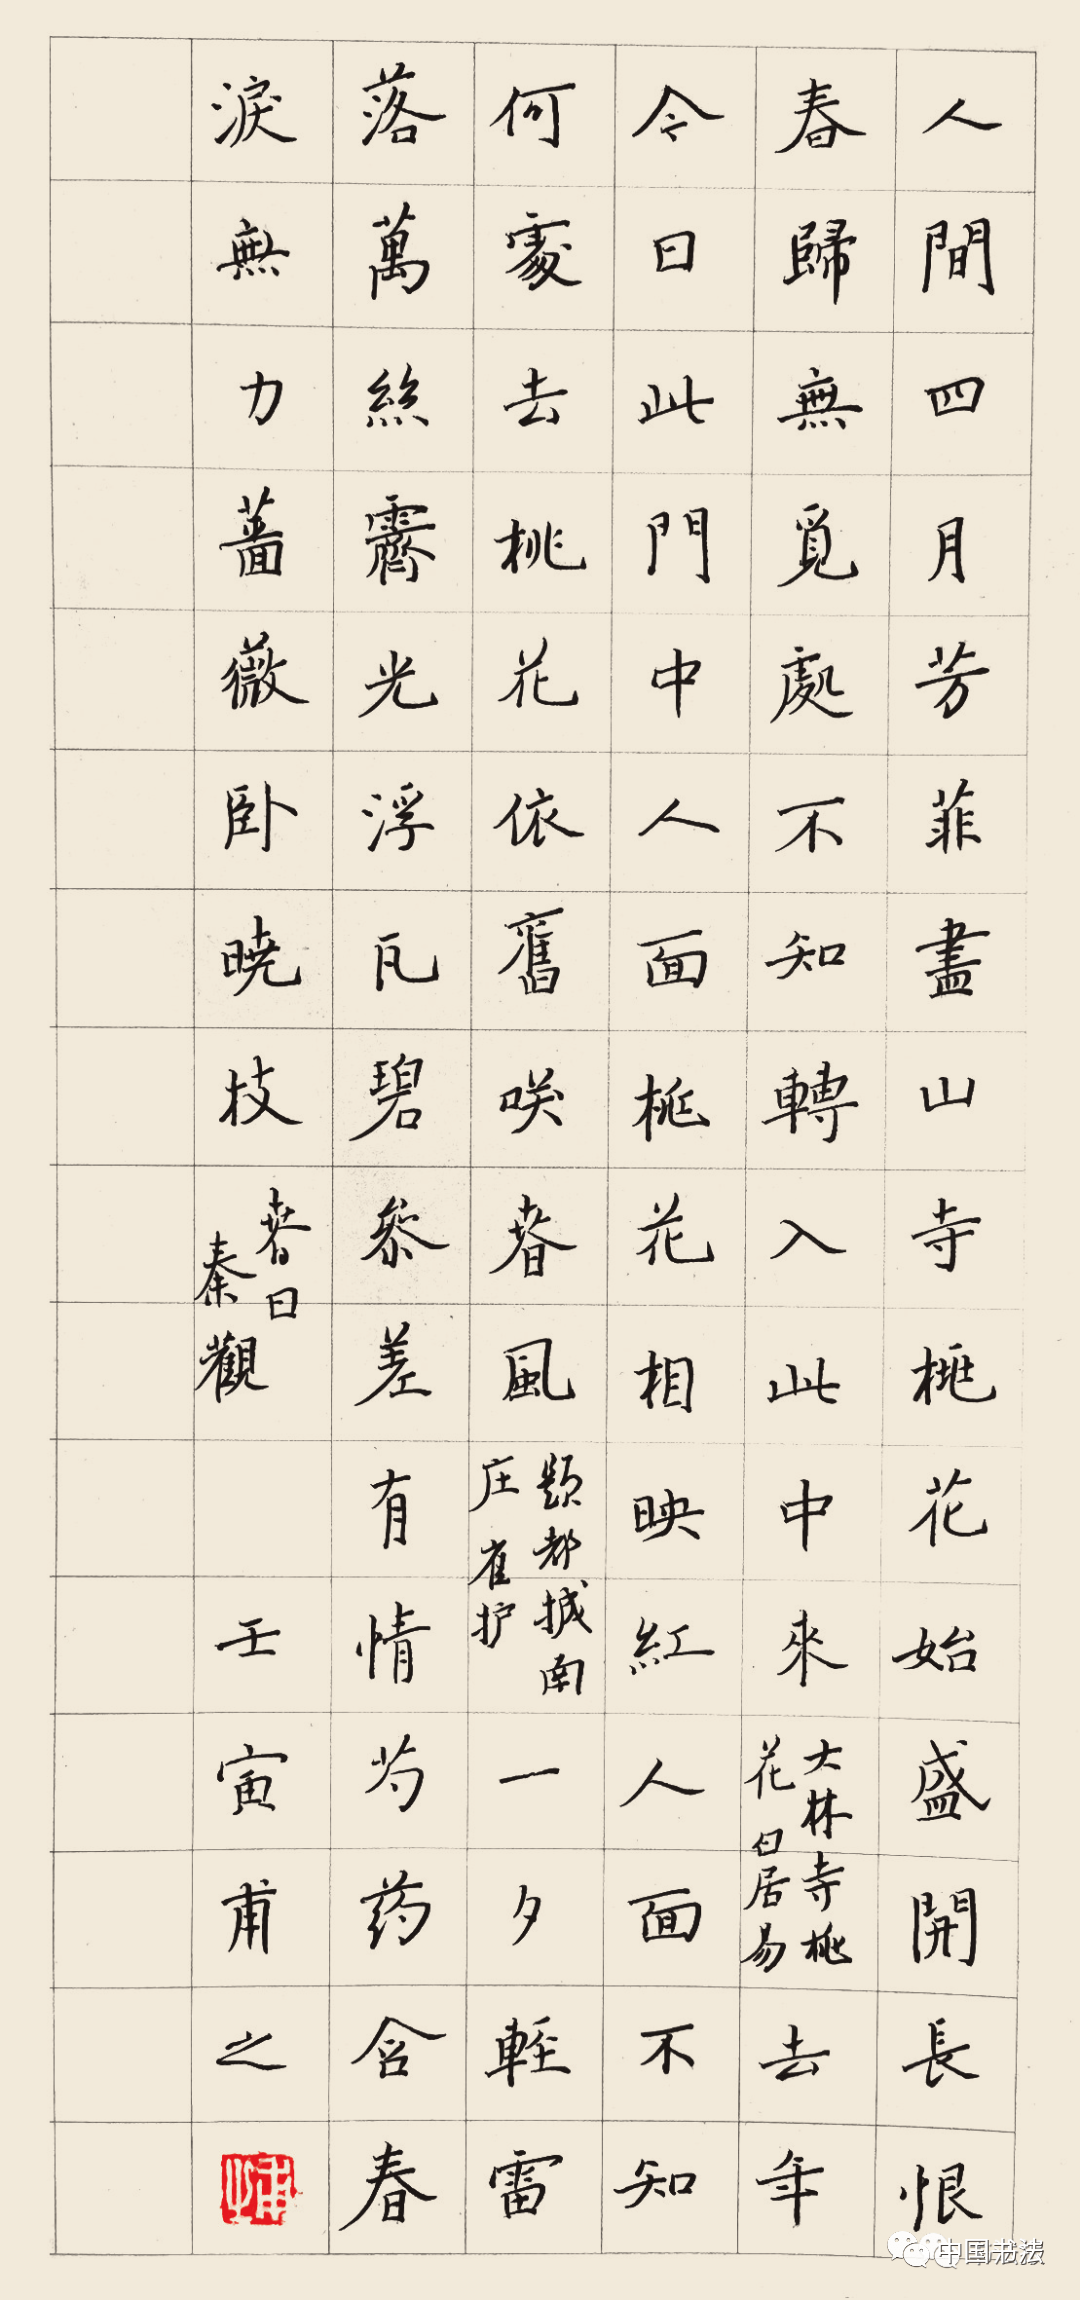 人間四月芳菲盡山寺桃花始盛開長恨
春歸無覓處不知轉入此中來
大林寺桃
花白居易
去年
今日此門中人面桃花相映紅人面不知
何處去桃花依舊咲春風
題都城南
庄崔护
一夕輕雷
落萬絲霽光浮瓦碧參差有情芍药含春
淚無力薔薇卧曉枝
春日
秦觀
壬寅甫之
中国书法